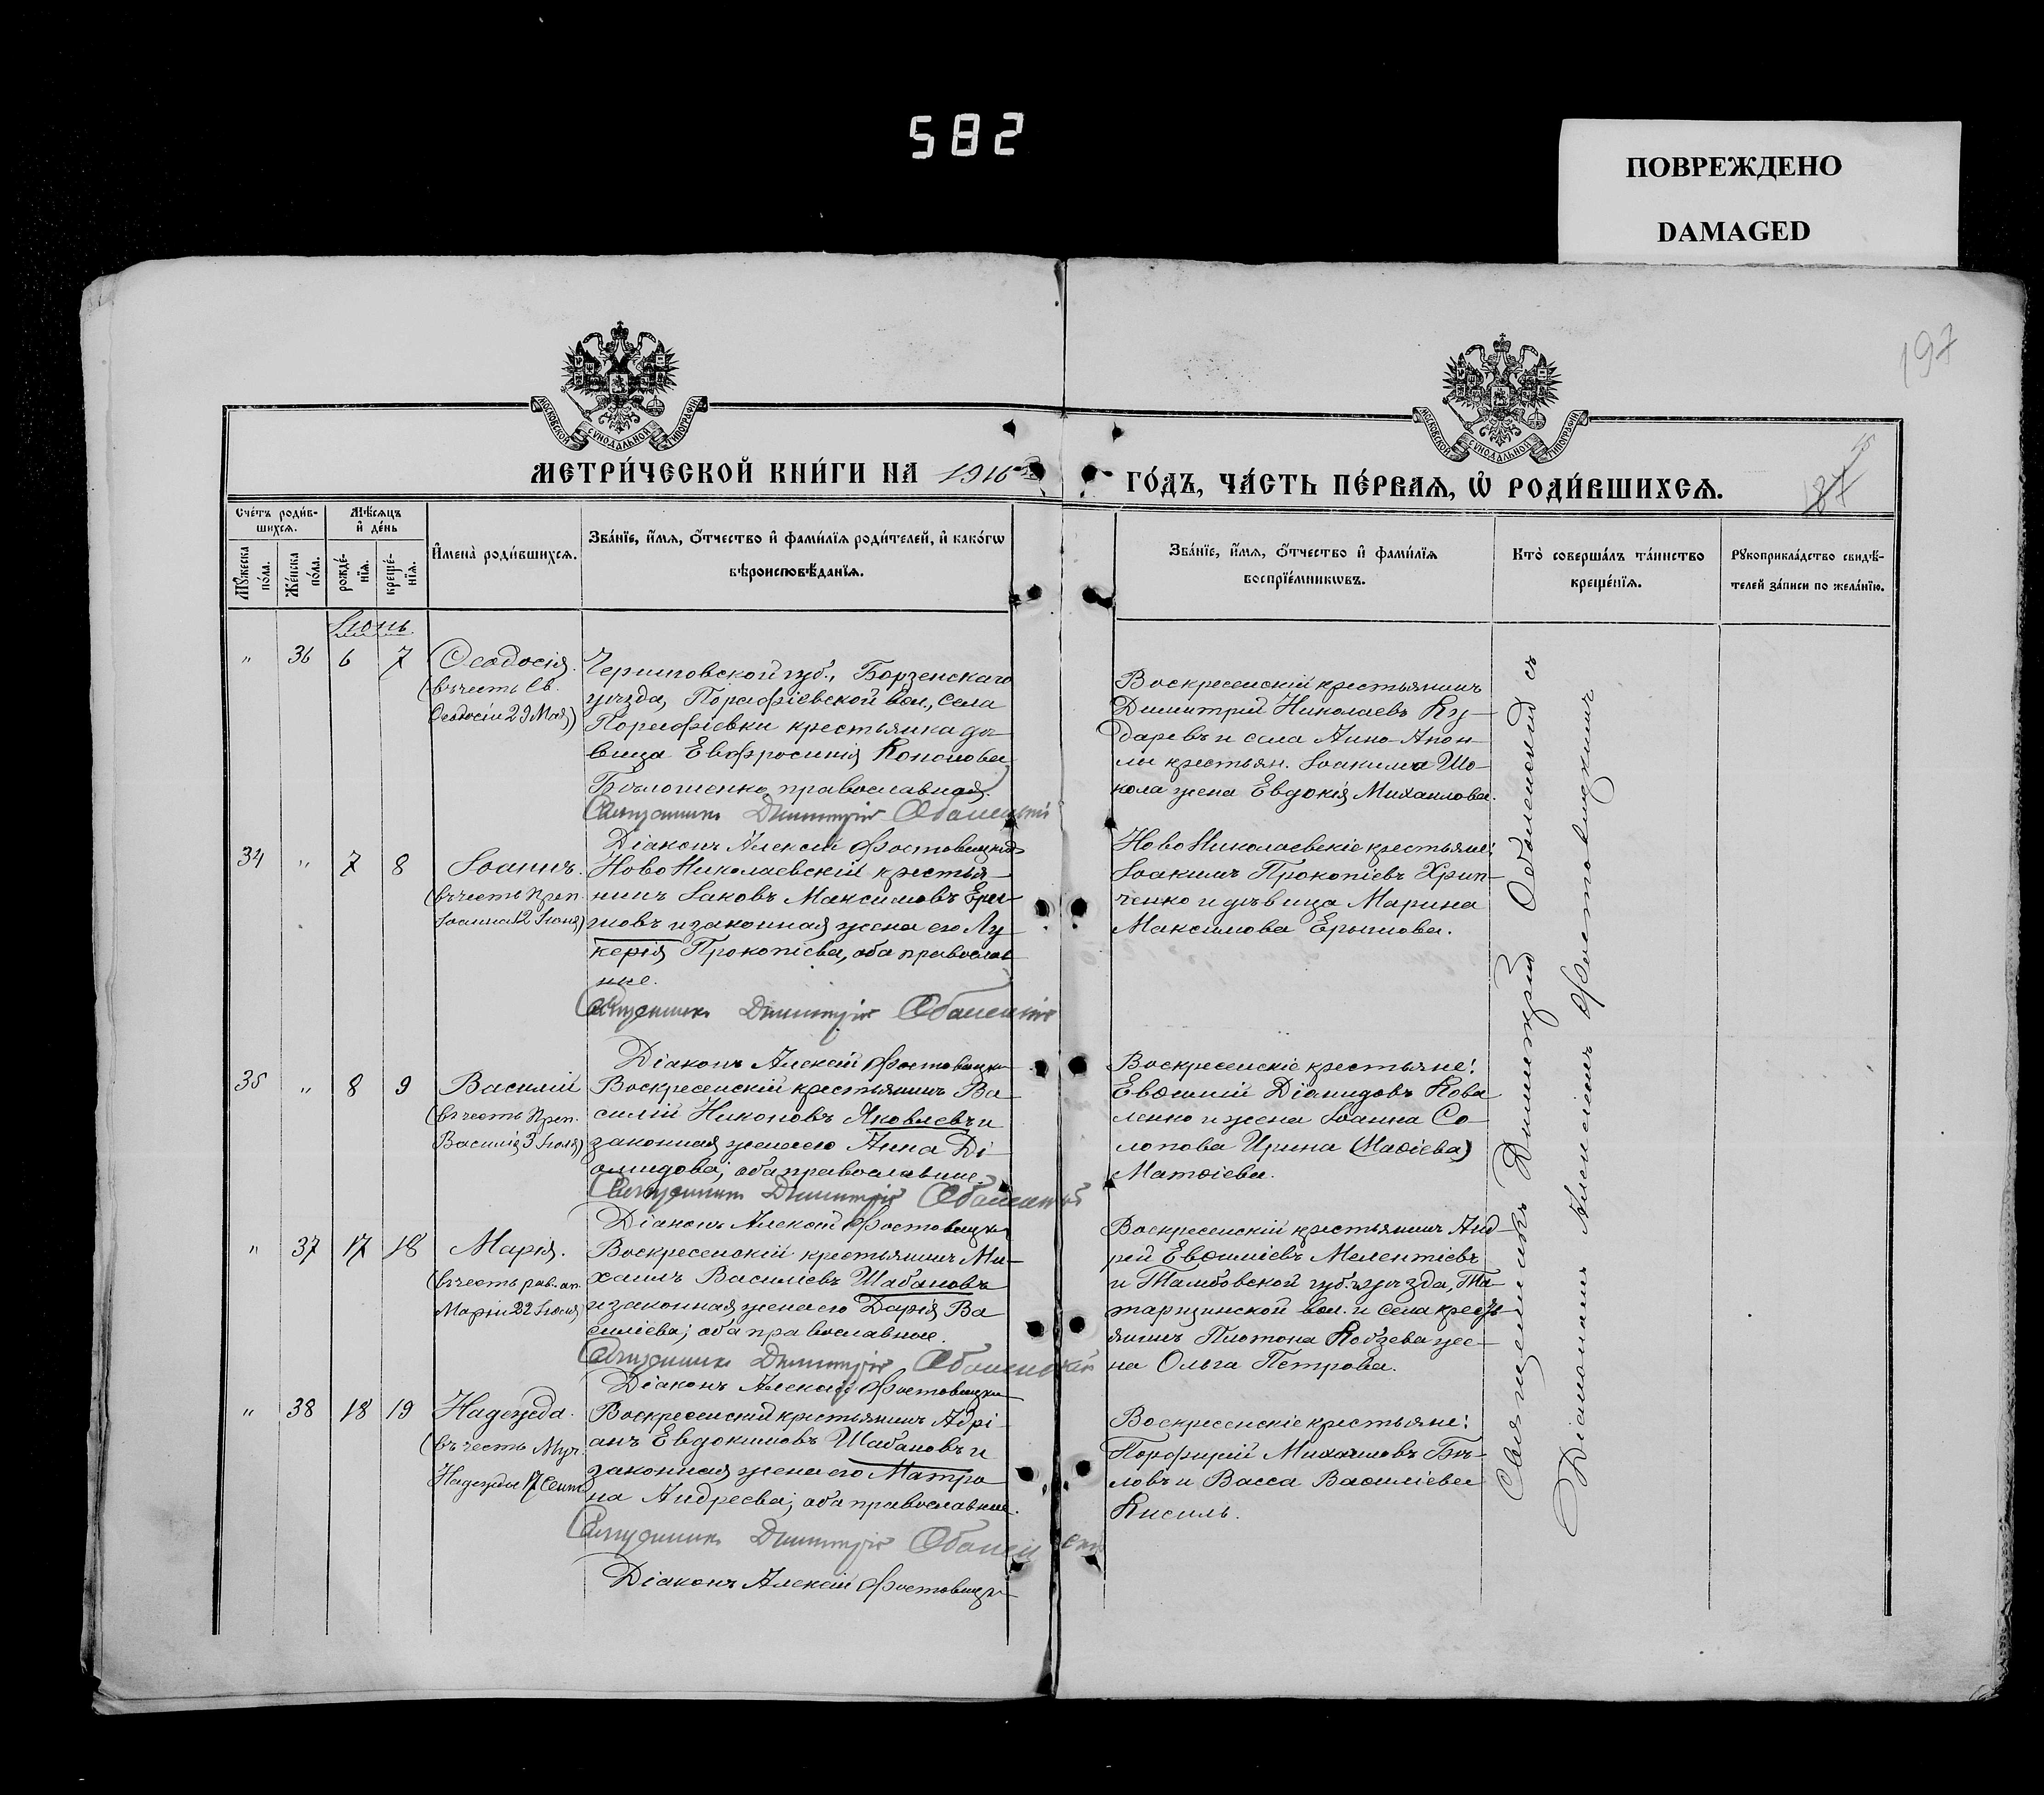 582
ПОВРЕЖДЕНО
DAMAGED
197
МОСКОВСКОЙ СУНОДАЛЬНОЙ ТИПОГРАФІИ
МОСКОВСКОЙ СУНОДАЛЬНОЙ ТИПОГРАФІИ
МЕТРИ́ЧЕСКОЙ КНИ́ГИ НА 1916
ГО́ДЪ, ЧА́СТЬ ПЕ́РВАЯ, Ѡ РОДИ́ВШИХСЯ.
15
187
Сче́тъ роди́в-
шихся.
Мꙋ́жеска по́ла.
Же́нска по́ла.
Мѣ́сяцъ
и҆ де́нь
рожде́-
нїя.
креще́-
нїя.
И҆мена̀ роди́вшихся.
Зва́нїе, и҆́мя, ѻ҆́тчество и҆ фами́лїя роди́телей, и҆ како́гѡ
вѣроисповѣ́данїя.
Зва́нїе, и҆́мя, ѻ҆́тчество и҆ фами́лїя
воспрїе́мникѡвъ.
Кто̀ соверша́лъ та́инство
креще́нїя.
Рꙋкоприкла́дство свидѣ́-
телей за́писи по жела́нїю.
Іюнь.
" 36 6 7 Ѳеодосія.
(въ честь Св.
Ѳеодосіи 29 Мая)
Черниговской губ., Борзенскаго
уѣзда, Порафіевской вол., села
Порафіевки крестьянка дѣ-
вица Евфросинія Кононова
Бѣлошенко, православная.
Священникъ Димитрій Оболенскій
Діаконъ Алексій Фостовицкій
Воскресенскій крестьянинъ
Димитрій Николаевъ Ку-
даревъ и села Анно-
крестьян. Іоакима Шо-
кола жена Евдокія Михаилова.
34 " 7 8 Іоаннъ.
(въ честь Преп.
Іоанна 12 Іюня)
Ново Николаевскій крестья-
нинъ Іаковъ Максимовъ Еры-
шовъ и законная жена его Лу-
керія Прокопіева, оба православ
ные.
Священникъ Димитрій Оболенскій
Діаконъ Алексій Фостовицкій
Ново Николаевскіе крестьяне:
Іоакимъ Прокопіевъ Хрип-
ченко и дѣвица Марина
Максимова Ерышова.
35 " 8 9 Василій
(въ честь Преп.
Василія 3 Іюля)
Воскресенскій крестьянинъ Ва-
силій Никоновъ Яковлевъ и
законная жена его Анна Ді-
омидова; оба православные.
Священникъ Димитрій Оболенскій
Діаконъ Алексій Фостовицкій
Воскресенскіе крестьяне:
Евѳимій Діамидовъ Кова
ленко и жена Іоанна Со-
лопова Ирина (Маѳіева)
Матѳіева.
" 37 17 18 Марія.
(въ честь рав. ап.
Маріи 22 Іюля)
Воскресенскій крестьянинъ Ми-
хаилъ Василіевъ Шабановъ
и законная жена его Дарія Ва
силіева; оба православные.
Священникъ Димитрій Оболенскій
Діаконъ Алексій Фостовицкій
Воскресенскій крестьянинъ Анд-
рей Евѳиміевъ Мелентіевъ
и Тамбовской губ. и уѣзда, Та-
таризинской вол. и села кресть-
янинъ Платона Кобзева же-
на Ольга Петрова.
" 38 18 19 Надежда.
(въ честь Муч.
Надежды 17 Сент
Воскресенскій крестьянинъ Адрі-
анъ Евдокимовъ Шабановъ и
законная жена его Матро
на Андреева; оба православные.
Священникъ Димитрій Оболенскій
Діаконъ Алексій Фостовицкій
Воскресенскіе крестьяне:
Порфирій Михаиловъ Бѣ-
ловъ и Васса Василіева
Кисиль.
Священникъ Димитрій Оболенскій съ
Діакономъ Алексіемъ Фостовицкимъ